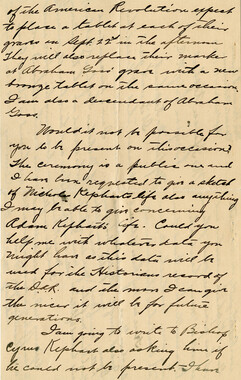 of the American Revolution expect
to place a tablet at each of their
graves on Sept. 22nd in the afternoon
They will also replace their marker
at Abraham Goss grave with a new
bronze tablet on the same occasion
I am also a descendant of Abraham
Goss.
Would it not be possible for
you to be present on this occasion?
The ceremony is a public one and
I have been requested to give a sketch
of Nicholas Kepharts life also anything
I may be able to give concerning
Adam Kepharts life. Could you
help me with whatever data you
might have as this data will be
used for the Historical record of
the D.A.R. and the more I can give
the nicer it will be for future
generations.
I am going to write to Bishop
Cyrus Kephart also asking him if
he could not be present. I have